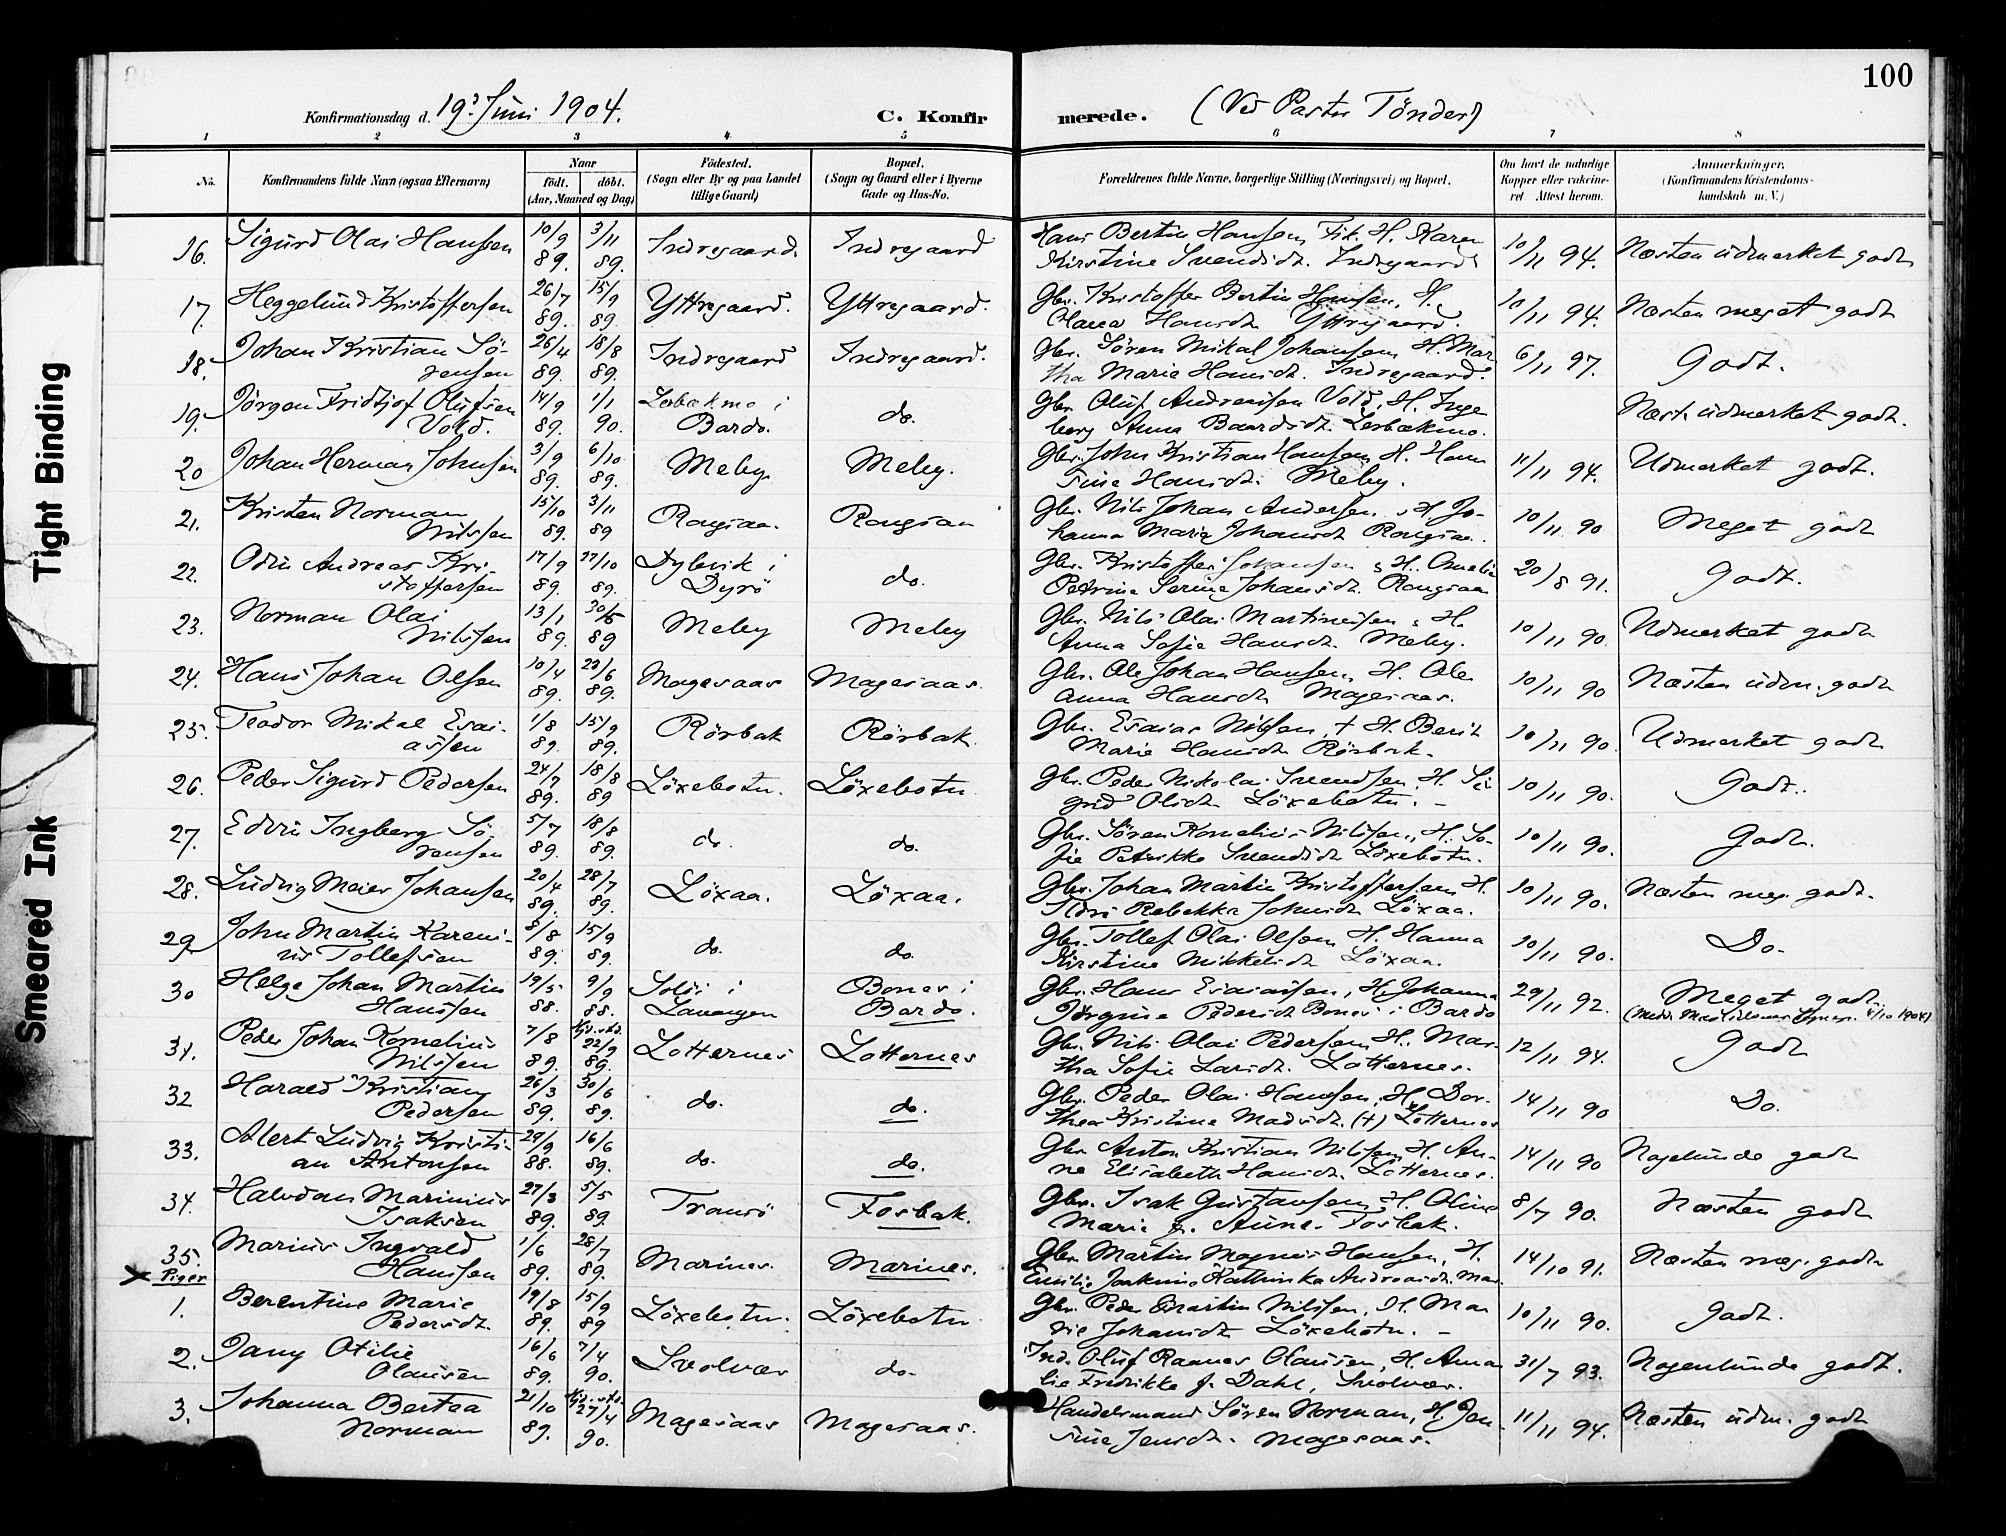 100
Konfirmationsdag d. 19de Juni 1904. C. Konfirmerede. (Ved Pastor Tönder)
1 2 3 4 5 6 7 8
No. Konfirmandens fulde Navn (ogsaa Efternavn) Naar födt. döbt. (Aar, Maaned og Dag) Födested. (Sogn eller By og paa Landet tillige Gaard) Bopæl. (Sogn og Gaard eller i Byerne Gade og Hus-No. Forældrenes fulde Navne, borgerlige Stilling (Næringsvei) og Bopæl. Om havt de naturlige Kopper eller vakcineret. Attest herom. Anmærkninger. (Konfirmandens Kristendomskundskab m. V.)
16. Sigurd Olai Hanssen 10/9 89. 3/11 89. Indregaard. Indregaard Hans Bertin Hansen, Fisk. H. Karen
Kirstine Svendsdt. Indregaard 10/11 94. Næsten udmerket godt
17. Heggelund Kristoffersen 26/7 89. 15/9 89 Yttregaard. Yttregaard. Gbr. Kristoffer Bertin Hansen, H.
Hansdt. Yttregaard. 10/11 94. Næsten meget godt
18. Johan Kristian Sö-
rensen 26/4 89. 18/8 89. Indregaard Indregaard. Gbr. Sören Mikal Johansen, H. Mar
tha Marie Hansdt. Indregaard. 6/11 97. Godt.
19. Jörgen Fridtjof Olufsen
Vold. 14/9 89. 1/1 90. i
Bardo. do. Gbr. Oluf Andreasen Vold, H. Inge
borg Anna Baardsdt. Næst. udmerket godt.
20 Johan Herman Johnsen 3/9 89. 6/10 89. Meby Meby. Gbr. John Kristian Hansen, H. Han
sine Hansdt. Meby. 11/11 94. Udmerket godt.
21. Kristen Norman
Nilssen 15/10 89. 3/11 89 Rangsaa. Rangsaa Gbr. Nils Johan Andersen, H. Jo-
hanna Marie Johansdt Rangsaa. 10/11 90 Meget godt
22. Odin Andreas Kri-
stoffersen 17/9 89. 27/10 89. i
Dyrö do. Gbr. Kristoffer Johansen, H. Amelia
Petrine Serine Johansdt. Rangsaa 20/8 91. Godt.
23. Norman Olai
Nilssen 13/1 89. 30/5 89 Meby Meby Gbr. Nils Olai Martinussen, H.
Anna Sofie Hansdt. Meby. 10/11 90. Udmerket godt
24. Hans Johan Olsen 10/4 89. 23/6 89. Magesaas Magesaas. Gbr. Ole Johan Hansen, H. Ole
anna Hansdt Magesaas. 10/11 90 Næsten udm. godt
25. Teodor Mikal Esai-
assen 1/8 89. 15/9 89. Rörbak Rörbak. Gbr. Esaias Nilssen, + H. Berit
Marie Hansdt Rörbak. 10/11 90. Udmerket godt
26. Peder Sigurd Pedersen 24/7 89. 18/8 89 Löxebotn. Löxebotn. Gbr. Peder Nikolai Svendsen, H. Si
grid Olsdt. Löxebotn. 10/11 90. Godt.
27. Edvin Ingberg Sö-
rensen 5/7 89. 18/8 89. do. do. Gbr. Sören Kornelius Nilssen, H. So-
fie Petrikke Svendsdt Löxebotn. 10/11 90. Godt.
28. Ludvig Meier Johansen 20/4 89. 28/7 89. Löxaa. Löxaa. Gbr. Johan Martin Kristoffersen, H.
Rebekka Johnsdt Löxaa. 10/11 90. Næsten meg. godt.
29 John Martin Kareni-
us Tollefsen 8/8 89. 15/9 89. do. do. Gbr. Tollef Olai Olsen, H. Hanna
Kirstine Mikkelsdt Löxaa. 10/11 90. Do.
30 Helge Johan Martin
Hanssen 19/5 88. 9/9 88. i
Lavangen Bones i
Bardo. Gbr. Hans Esaiassen, H. Johanna
Jörgine Pedersdt Bones i Bardo 29/11 92. Meget godt
31. Peder Johan Kornelius
Nilssen 7/8 89. 22/9 89. Lotternes Lotternes Gbr. Nils Olai Pedersen, H. Mar-
tha Sofie Larsdt. Lotternes. 12/11 94. Godt
32 Harald Kristian
Pedersen 26/3 89. 30/6 89. do. do. Gbr. Peder Olai Hansen, H. Dor-
thea Kristine Madsdt. (+) Lotternes 14/11 90 Do.
33. Alert Ludvig Kristi-
an Antonsen 29/9 88. 16/6 89. do. do. Gbr Anton Kristian Nilssen, H. An-
ne Elisabeth Hansdt. Lotternes. 14/11 90 Nogenlunde godt
34. Halvdan Marinius
Isaksen 27/3 89. 5/5 89. Tromsö Fosbak. Gbr. Isak Gustavsen, H. Oline
Marie f. Aune. Fosbak. 8/7 90. Næsten godt
35. Marius Ingvald
Hanssen 1/6 89. 28/7 89. Marines. Marines. Gbr. Martin Magnus Hansen, H.
Emilie Joakmine Kathinka Andreasdt. Mar. 14/10 91. Næsten meg. godt
Piger
1. Berentine Marie
Pedersdt. 19/8 89. 15/9 89 Löxebotn. Löxebotn Gbr. Peder Martin Nilssen, H. Ma
rie Johansdt Löxebotn. 10/11 90. Godt.
2. Dany Otilie
Olaussen 16/6 89. 7/4 90. Svolvær do. Oluf Raanes Olausen, H. Ama
lie Fredrikke f. Dahl, Svolvær. 31/7 93. Nogenlunde godt.
3. Johanna Bertea
Norman 21/10 89. 27/4 90. Magesaas Magesaas. Handelsmand Sören Norman, H. Jen-
sine Jensdt. Magesaas. 11/11 94. Næsten udm. godt
Tight Binding
Smeared Ink